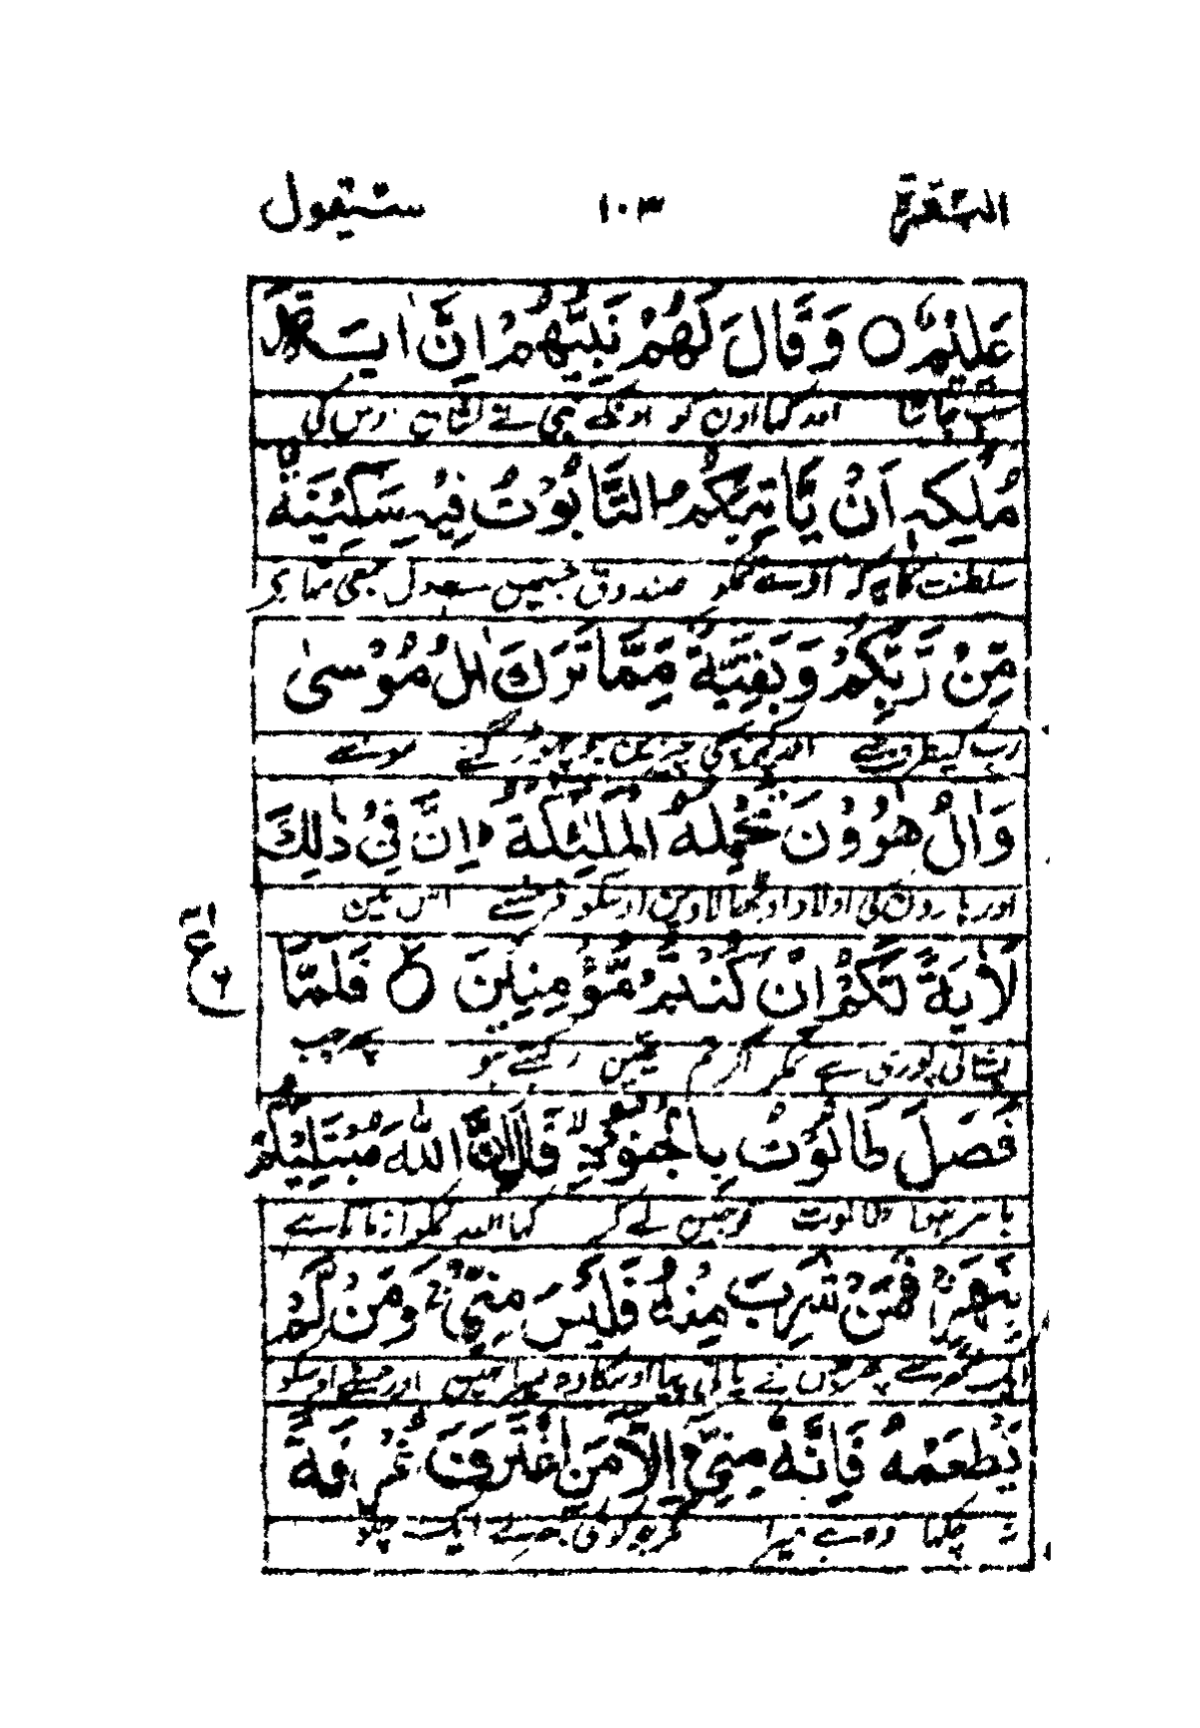 البقرة ۱۰۳ سيقول
عَلِيْمٌ ○ وَقَالَ لَهُمْ نَبِيُّهُمْ اِنَّ اٰيَةَ
سب جانتا اور کہا اون کو اونکے نبی نے نشان اوس کی
مُلْكِهٖ اَنْ يَّاْتِيَكُمُ التَّابُوْتُ فِيْهِ سَكِيْنَةٌ
سلطنت کا یہ کہ آوے تمکو صندوق جسمیں
مِّنْ رَّبِّكُمْ وَبَقِيَّةٌ مِّمَّا تَرَكَ اٰلُ مُوْسٰى
رب کیطرف سے اور کچھ چھوڑ گئے موسے
وَاٰلُ هٰرُوْنَ تَحْمِلُهُ الْمَلٰٓئِكَةُ ؕ اِنَّ فِيْ ذٰلِكَ
اور ہارون کی اولاد اوٹھا لاویں اوسکو فرشتے اس میں
لَاٰيَةً لَّكُمْ اِنْ كُنْتُمْ مُّؤْمِنِيْنَ ○ فَلَمَّا
نشانی پوری ہے تمکو اگر تم یقین رکھتے ہو پھر جب
فَصَلَ طَالُوْتُ بِالْجُنُوْدِ ۙ قَالَ اِنَّ اللّٰهَ مُبْتَلِيْكُمْ
باہر ہوا طالوت فوجیں لے کر کہا اللہ تمکو آزماتا ہے
بِنَهَرٍ ۚ فَمَنْ شَرِبَ مِنْهُ فَلَيْسَ مِنِّيْ ۚ وَمَنْ لَّمْ
ایک نہر سے پھر جس نے پانی پیا اوسکا وہ میرا نہیں اور جسنے اوسکو
يَطْعَمْهُ فَاِنَّهٗ مِنِّيْٓ اِلَّا مَنِ اغْتَرَفَ غُرْفَةً
نہ چکھا وہ ہے میرا مگر جو کوئی بھرلے ایک چلو
ع